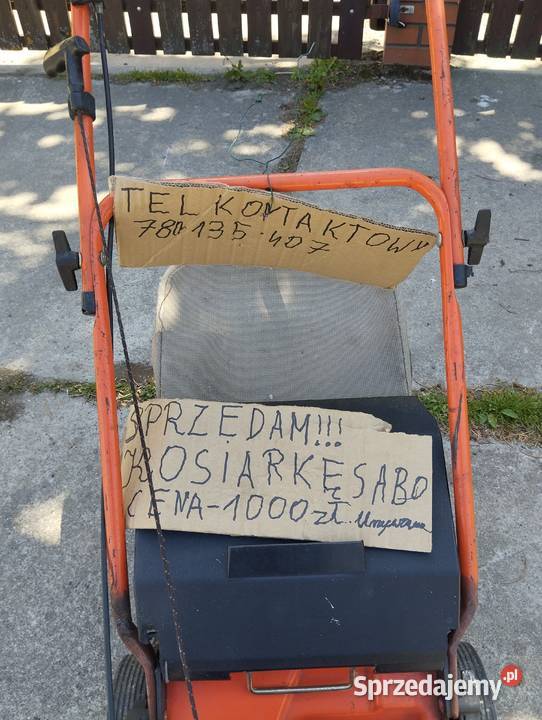 TEL KONTAKTOWY
780 135 407
SPRZEDAM!!!
KOSIARKĘ SABO
CENA-1000 zł. Używana
Sprzedajemy.pl